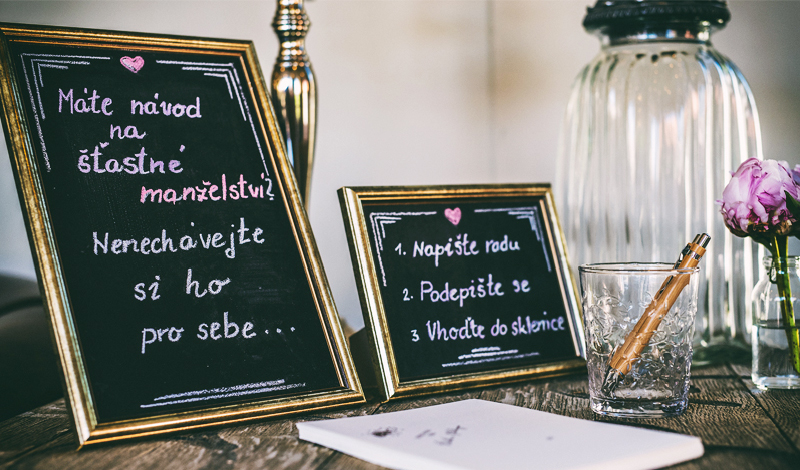 Máte návod
na
šťastné
manželství?
Nenechávejte
si ho
pro sebe...
1. Napište radu
2. Podepište se
3 Vhoďte do sklenice